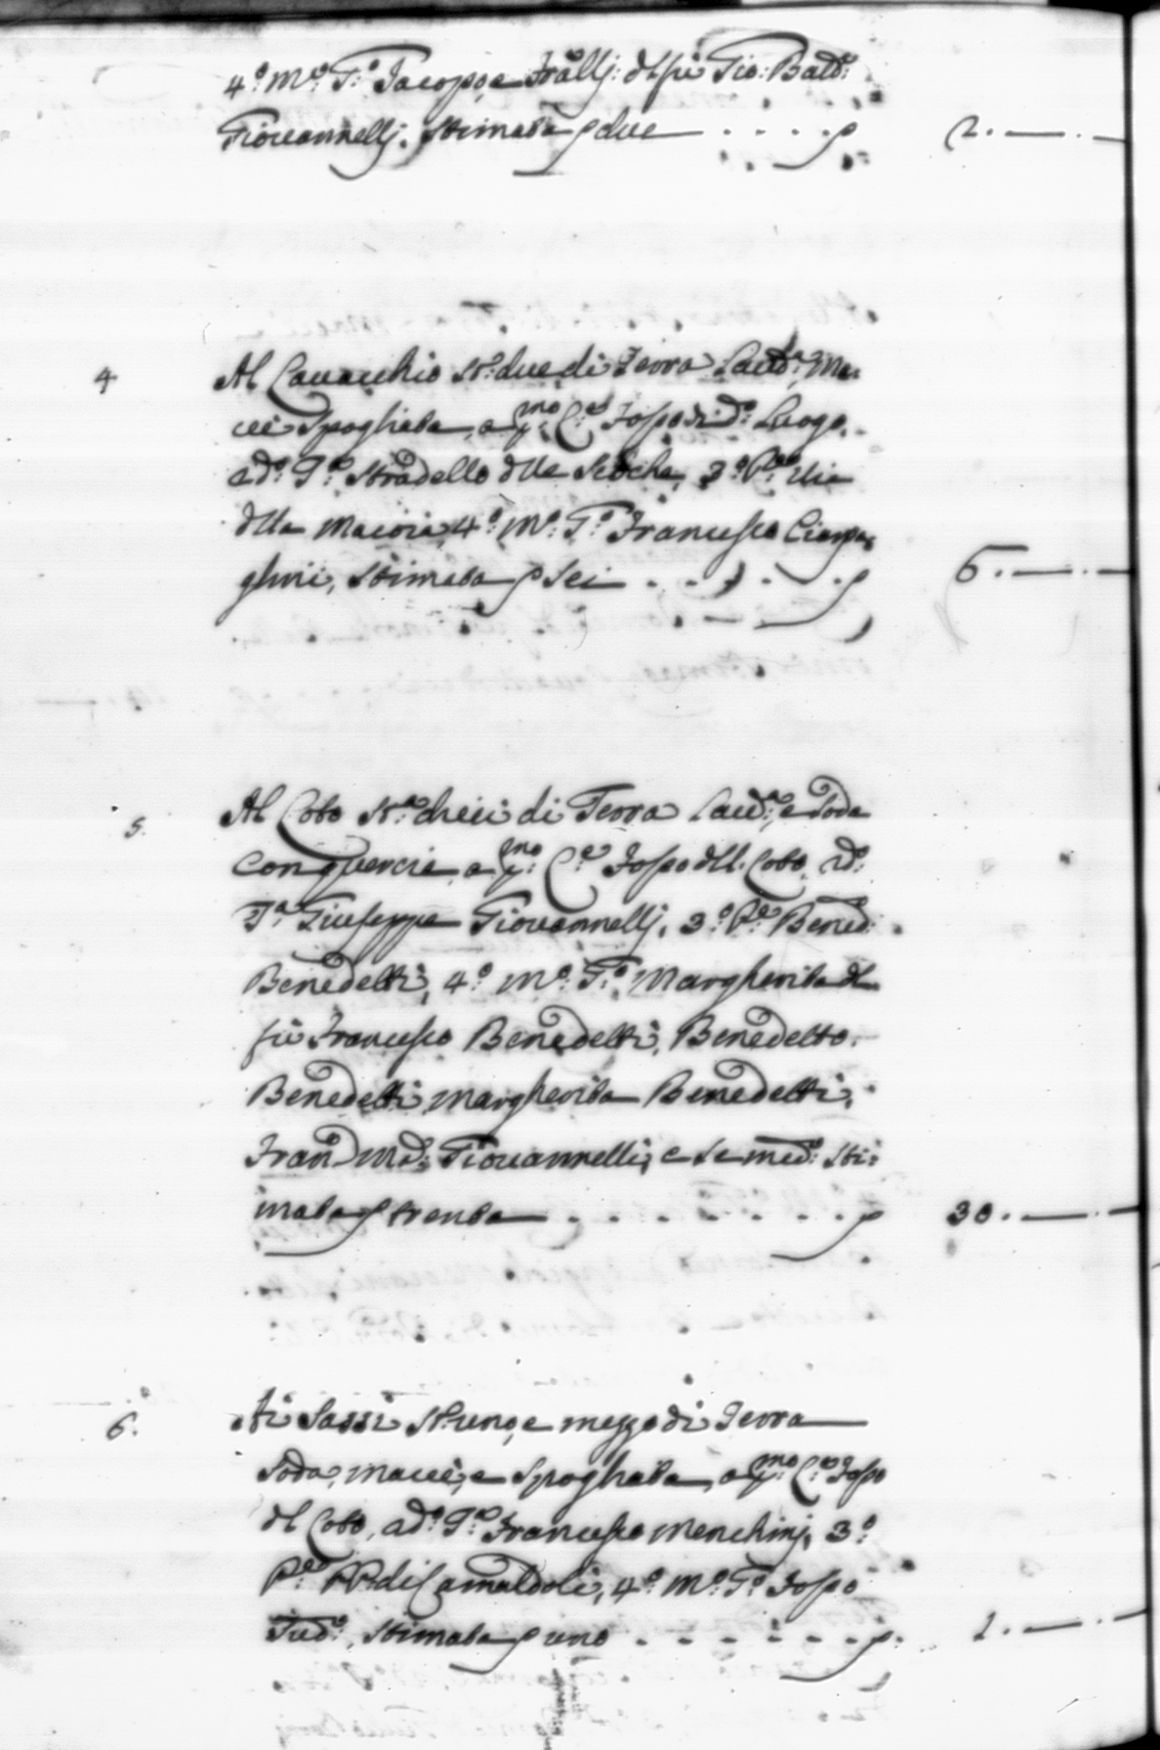 4.º M.º T.º Jacopo, e Fralli: d'lfù Gio: Batt.ª
Giovannelli, stimata p due - . . . . p 2. — . —
4 Al Cavacchio st.ª due di Terra Lavor.ª Mac-
cie Spogliata, a p.mo C.º Fosso di d.º Luogo,
a d.º T.º Stradello d'lle 3.º P.e Via
d'lla Macoia, 4.º M.º T.º Francesco Ciarpa-
ghini, stimata p Sei - . . . . p 6. — . —
5. Al Coto st.ª dieci di Terra Lavd.ª, e Soda
con quercie, a p.mo C.º Fosso d'll. Coto, a d.º
T.ª Giuseppe Giovannelli, 3.º P.e Bened:
Benedetti, 4.º M.º T.º Margherita d'l
fù Francesco Benedetti, Benedetto
Benedetti Margherita Benedetti,
Fran.º M.ª: Giovannelli, e Se med.º sti:
mata p trenta - . . . . . . p 30. — . —
6. Ai Sassi st.ª uno, e mezzo di Terra
Soda, maccie, e Spogliata, a p.mo C.º Fosso
d'l Coto, a d.º T.º Francesco Menchinj, 3.º
P.e PP. di Camaldoli, 4.º M.º T.º Fosso
Sud.º, stimata p uno - - - - - - p. 1. — . —